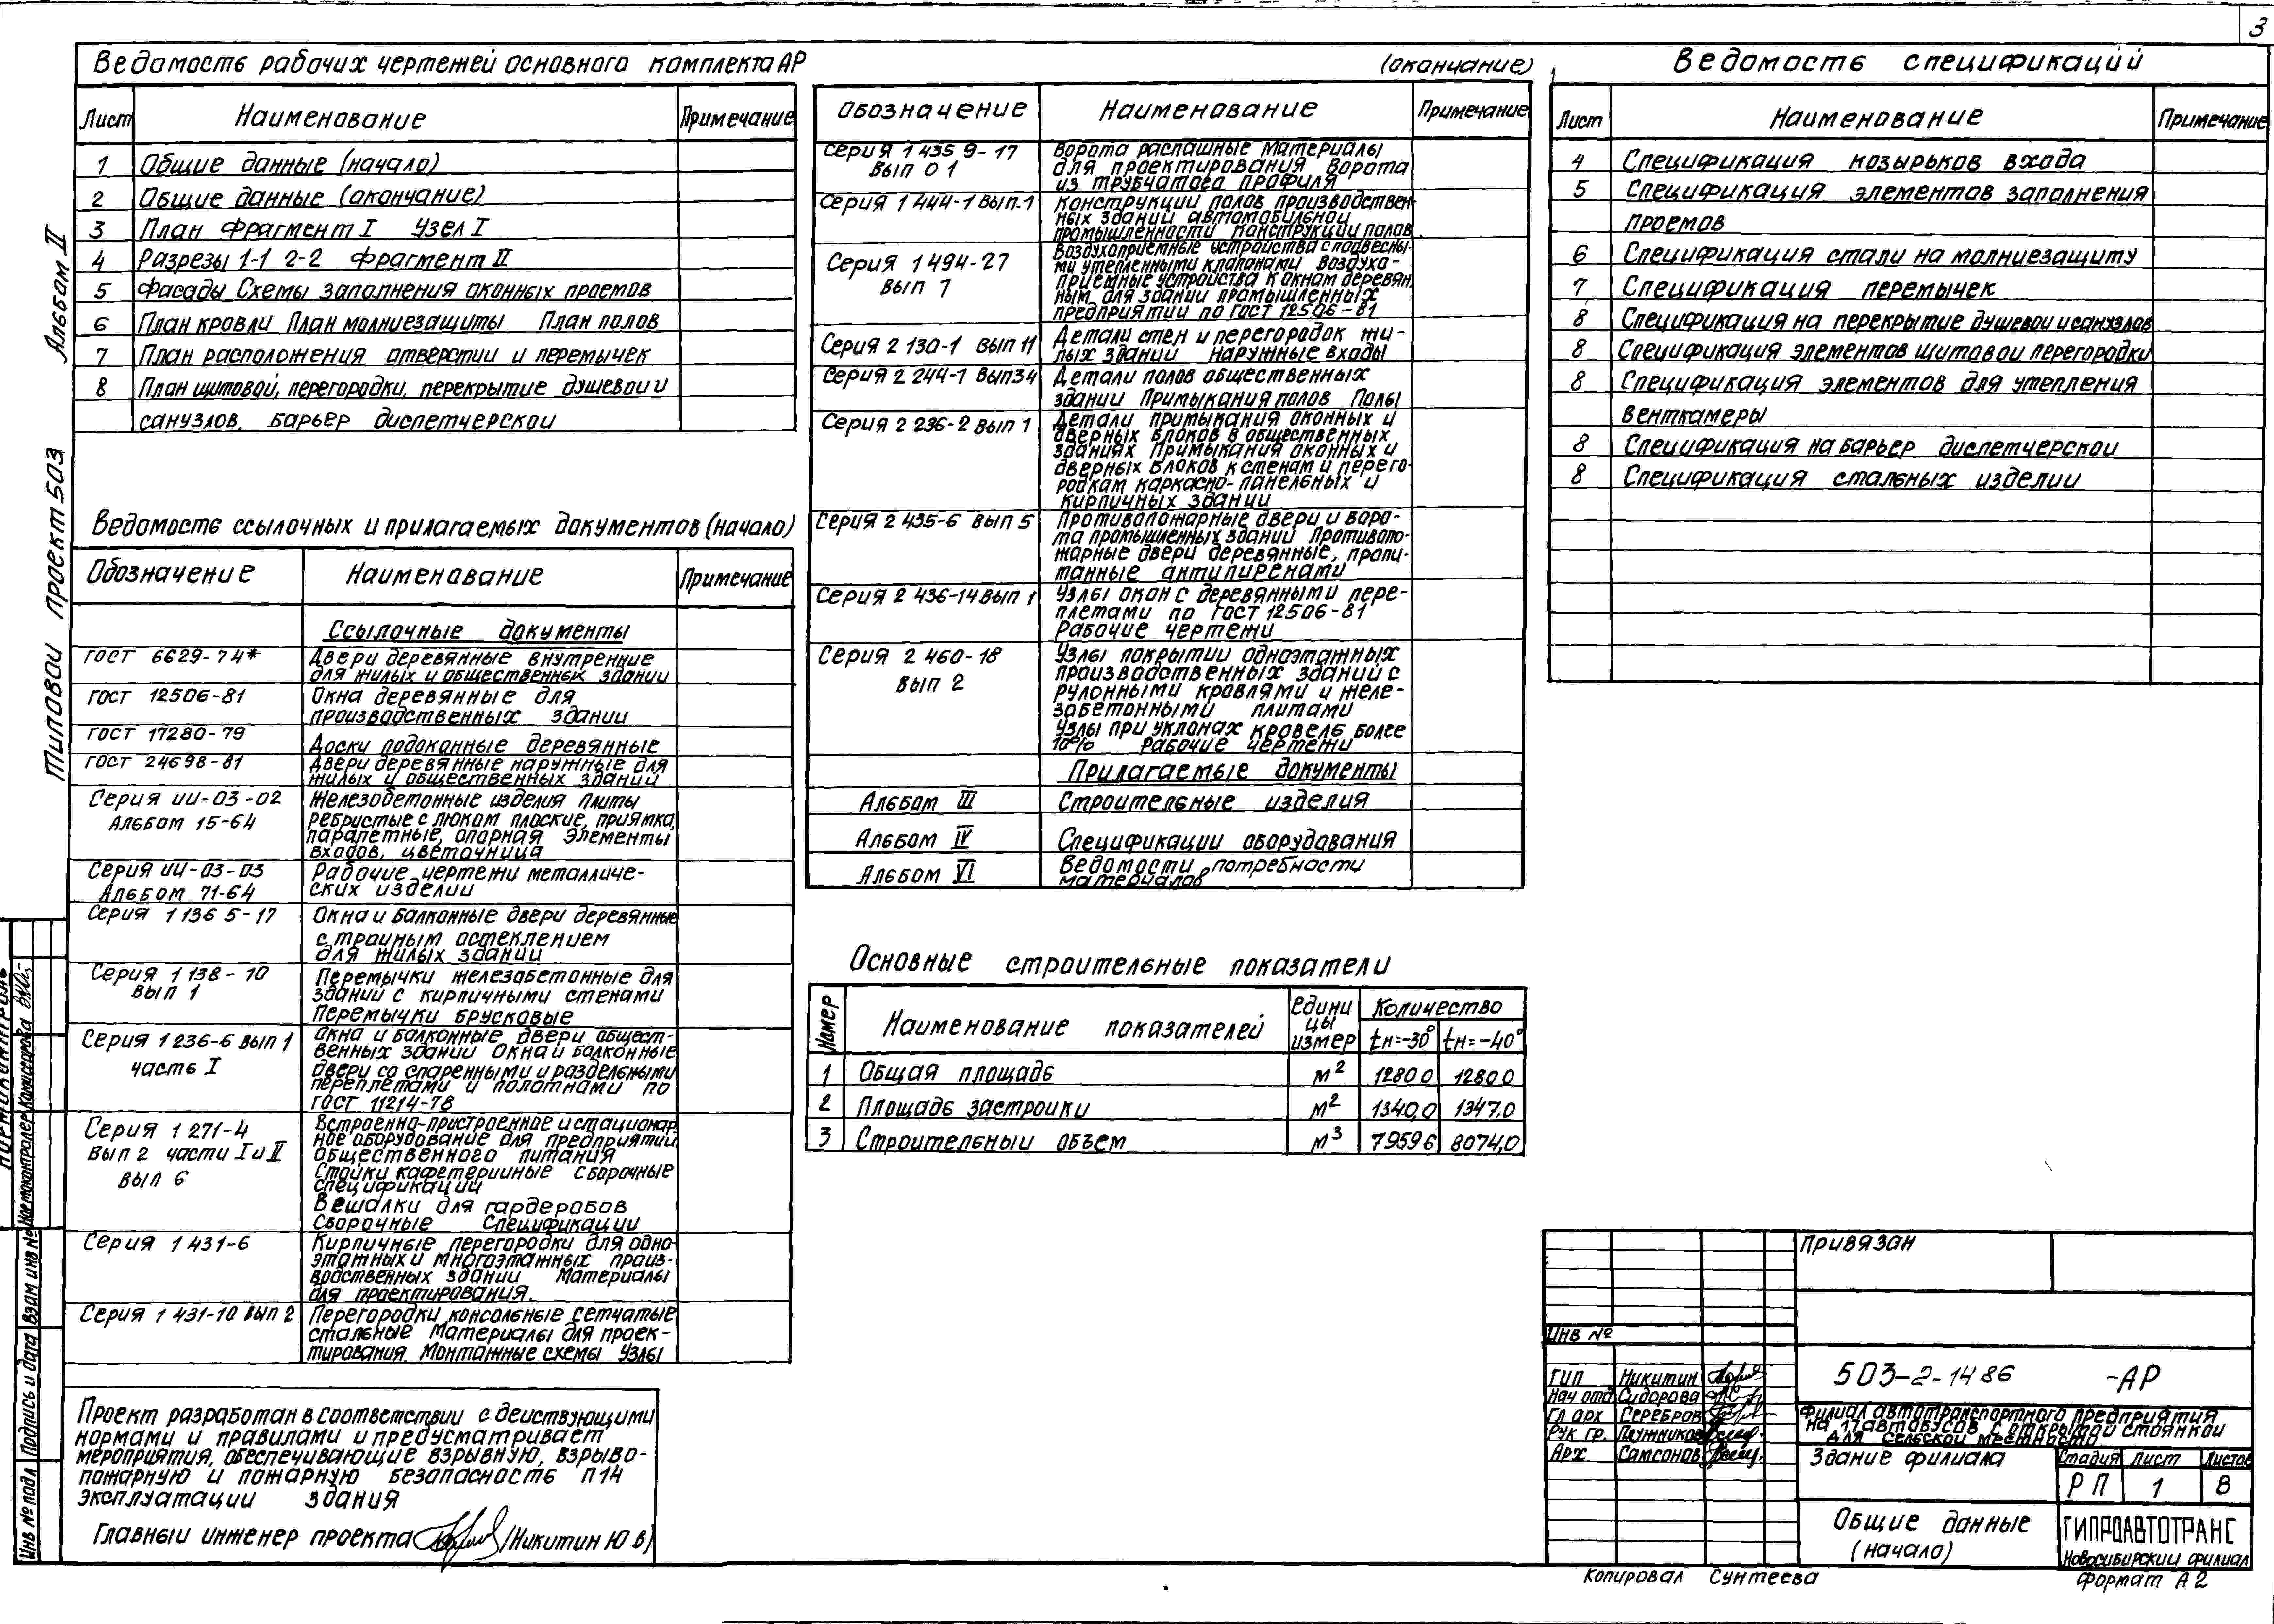 3
Ведомость рабочих чертежей основного комплекта АР
Лист Наименование Примечание
1 Общие данные (начало)
2 Общие данные (окончание)
3 План Фрагмент I Узел I
4 Разрезы 1-1 2-2 Фрагмент II
5 Фасады Схемы заполнения оконных проемов
6 План кровли План молниезащиты План полов
7 План расположения отверстии и перемычек
8 План щитовой, перегородки, перекрытие душевои и
санузлов. барьер диспетчерскои
Ведомость ссылочных и прилагаемых документов (начало)
Обозначение Наименование Примечание
Ссылочные документы
ГОСТ 6629-74* Двери деревянные внутренние
для жилых и общественных здании
ГОСТ 12506-81 Окна деревянные для
производственных здании
ГОСТ 17280-79 Доски подоконные деревянные
ГОСТ 24698-81 Двери деревянные наружные для
жилых и общественных здании
Серия ИИ-03-02 Железобетонные изделия Плиты
Альбом 15-64 ребристые с люком плоские, приямка,
парапетные, опорная Элементы
входов, цветочница
Серия ИИ-03-03 Рабочие чертежи металличе-
Альбом 71-64 ских изделии
Серия 1 136 5-17 Окна и балконные двери деревянные
с троиным остеклением
для жилых здании
Серия 1 138-10 Перемычки железобетонные для
вып 1 здании с кирпичными стенами
Перемычки брусковые
Серия 1 236-6 вып 1 Окна и балконные двери общест-
часть I венных здании Окна и балконные
двери со спаренными и раздельными
переплетами и полотнами по
ГОСТ 11214-78
Серия 1 271-4 Встроенно-пристроенное и стационар
Вып 2 части I и II ное оборудование для предприятии
общественного питания
вып 6 Стойки кафетерииные сборочные
спецификации
Вешалки для гардеробов
Сборочные Спецификации
Серия 1 431-6 Кирпичные перегородки для одно-
этажных и многоэтажных произ-
водственных здании Материалы
для проектирования.
Серия 1 431-10 вып 2 Перегородки консольные сетчатые
стальные Материалы для проек-
тирования. Монтажные схемы Узлы
Проект разработан в соответствии с деиствующими
нормами и правилами и предусматривает
мероприятия, обеспечивающие взрывную, взрыво-
пожарную и пожарную безопасность п14
эксплуатации здания
Главныи инженер проекта (Никитин Ю В)
(окончание)
Обозначение Наименование Примечание
Серия 1 435 9-17 Ворота распашные Материалы
Вып 0 1 для проектирования Ворота
из трубчатого профиля
Серия 1 444-1 Вып.1 Конструкции полов производствен-
ных здании автомобильнои
промышленности Конструкции полов
Серия 1 494-27 Воздухоприемные устроиства с подвесны-
вып 7 ми утепленными клапанами Воздухо-
приемные устроиства к окнам деревян
ным для здании промышленных
предприятии по ГОСТ 12506-81
Серия 2 130-1 вып 11 Детали стен и перегородок жи-
лых здании Наружные входы
Серия 2 244-1 вып34 Детали полов общественных
здании Примыкания полов Полы
Серия 2 236-2 вып 1 Детали примыкания оконных и
дверных блоков в общественных
зданиях Примыкания оконных и
дверных блоков к стенам и перего-
родкам каркасно-панельных и
кирпичных здании
Серия 2 435-6 вып 5 Противопожарные двери и воро-
та промышленных здании Противопо-
жарные двери деревянные, пропи-
танные антипиренами
Серия 2 436-14 вып 1 Узлы окон с деревянными пере-
плетами по ГОСТ 12506-81
Рабочие чертежи
Серия 2 460-18 Узлы покрытии одноэтажных
вып 2 производственных здании с
рулонными кровлями и желе-
забетонными плитами
Узлы при уклонах кровель более
10% Рабочие чертежи
Прилагаемые документы
Альбом III Строительные изделия
Альбом IV Спецификации оборудования
Альбом VI Ведомости потребности
материалов
Основные строительные показатели
Номер Наименование показателей Едини
цы
измер Количество
tн=-30° tн=-40°
1 Общая площадь м² 1280 0 1280 0
2 Площадь застроики м² 1340,0 1347.0
3 Строительныи объем м³ 7959 6 8074,0
Ведомость спецификаций
Лист Наименование Примечание
4 Спецификация козырьков входа
5 Спецификация элементов заполнения
проемов
6 Спецификация стали на молниезащиту
7 Спецификация перемычек
8 Спецификация на перекрытие душевои и санузлов
8 Спецификация элементов щитовои перегородки
8 Спецификация элементов для утепления
венткамеры
8 Спецификация на барьер диспетчерскои
8 Спецификация стальных изделии
Привязан
Инв №
ГИП Никитин
Нач отд Сидорова
Гл арх Серебров
Рук гр.
Арх Самсонов
503-2-14 86 -АР
Филиал автотранспортного предприятия
на 17 автобусов с открытой стоянкой
для сельской местности
Здание филиала
Стадия Лист Листов
РП 1 8
Общие данные
(начало)
ГИПРОАВТОТРАНС
Новосибирскии филиал
Копировал Сунтеева
Формат А2
Типовои проект 503 Альбом II
Нормоконтролер Комиссарова
Инв № подл Подпись и дата Взам инв №